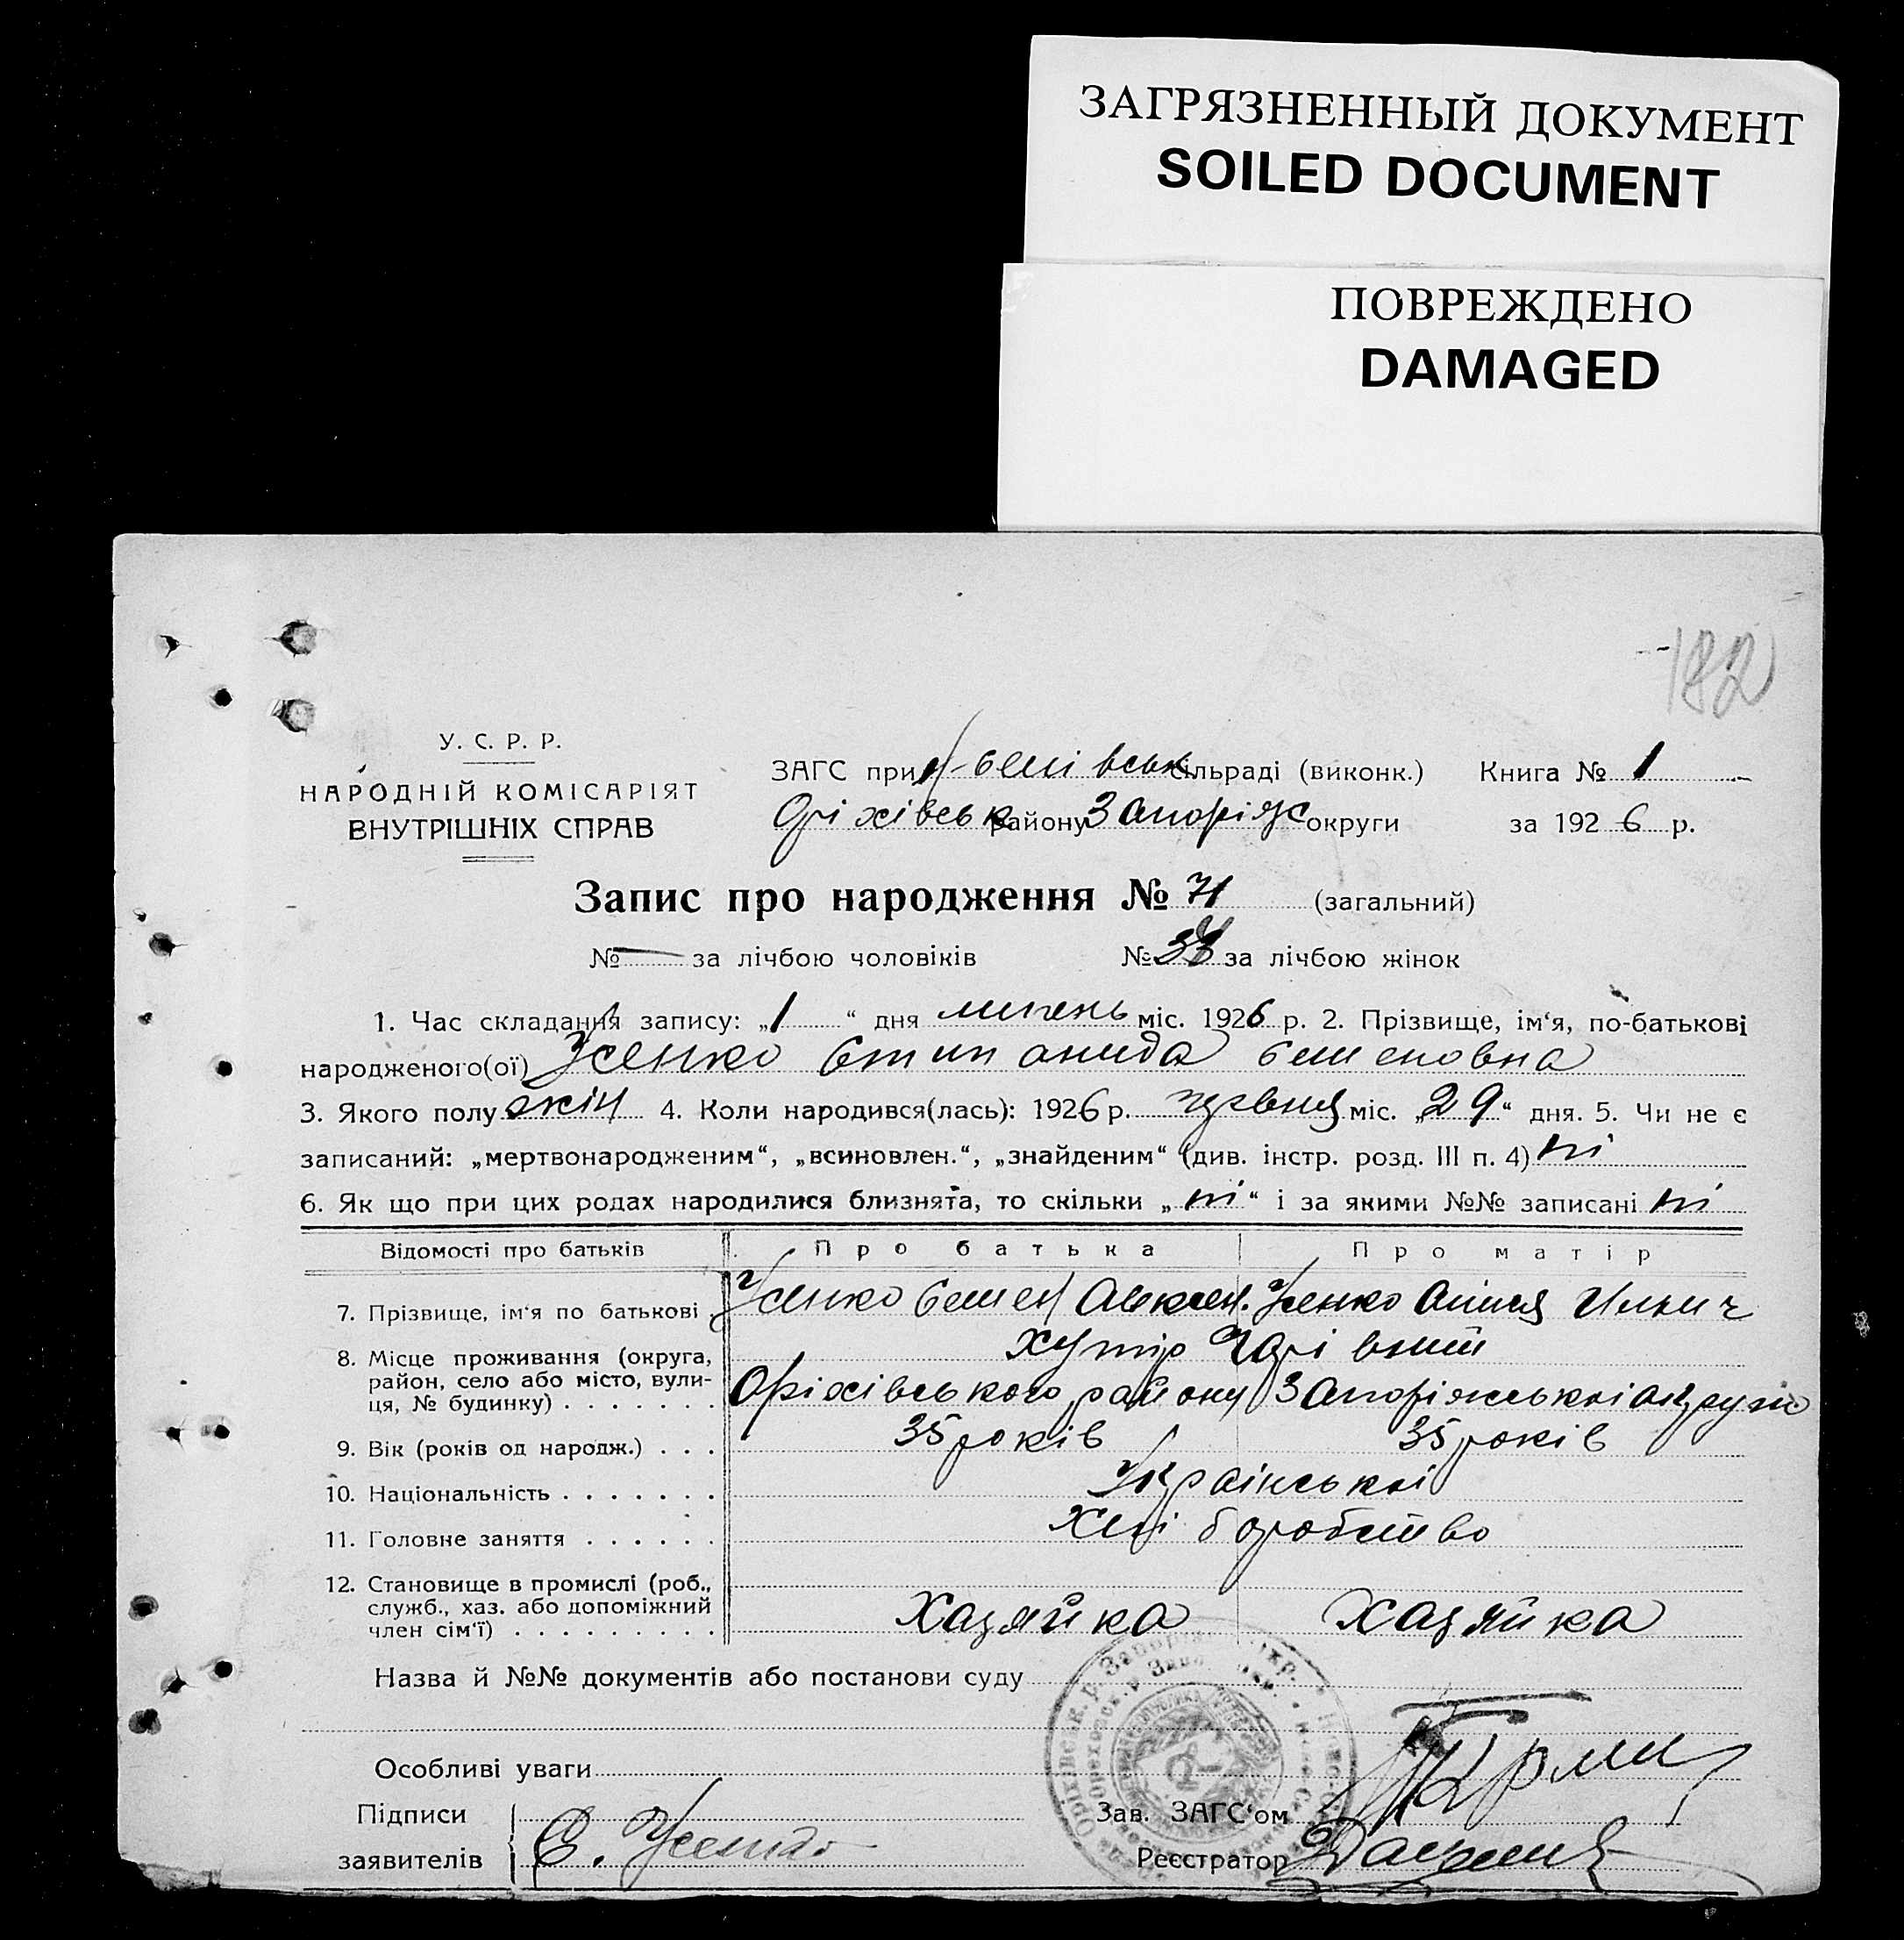 ЗАГРЯЗНЕННЫЙ ДОКУМЕНТ
SOILED DOCUMENT
ПОВРЕЖДЕНО
DAMAGED
182
У. С. Р. Р.
НАРОДНІЙ КОМІСАРІЯТ
ВНУТРІШНІХ СПРАВ
ЗАГС при сільраді (виконк.) Книга № 1
Оріхівськ району Запоріж округи за 1926 р.
Запис про народження № 71 (загальний)
№ — за лічбою чоловіків № за лічбою жінок
1. Час складання запису: „1“ дня липень міс. 1926 р. 2. Прізвище, ім‘я, по-батькові
народженого(ої) Усенко Стипанида Семеновна
3. Якого полу жін 4. Коли народився(лась): 1926 р. червня міс. „29“ дня. 5. Чи не є
записаний: „мертвонародженим“, „всиновлен.“, „знайденим“ (див. інстр. розд. III п. 4) ні
6. Як що при цих родах народилися близнята, то скільки „ні“ і за якими №№ записані ні
Відомості про батьків Про батька Про матір
7. Прізвище, ім‘я по батькові Усенко Семен Усенко
8. Місце проживання (округа, хутір
район, село або місто, вули- Оріхівського району Запоріжської округи
ця, № будинку) . . . . . . .
9. Вік (років од народж.) . . . 35 років 35 років
10. Національність . . . . . . . Українські
11. Головне заняття . . . . . . Хліборобство
12. Становище в промислі (роб.,
служб., хаз. або допоміжний Хазяйка Хазяйка
член сім‘ї) . . . . . . . . .
Назва й №№ документів або постанови суду
Особливі уваги
Підписи Зав. ЗАГС‘ом
заявителів С. Усенко Реєстратор